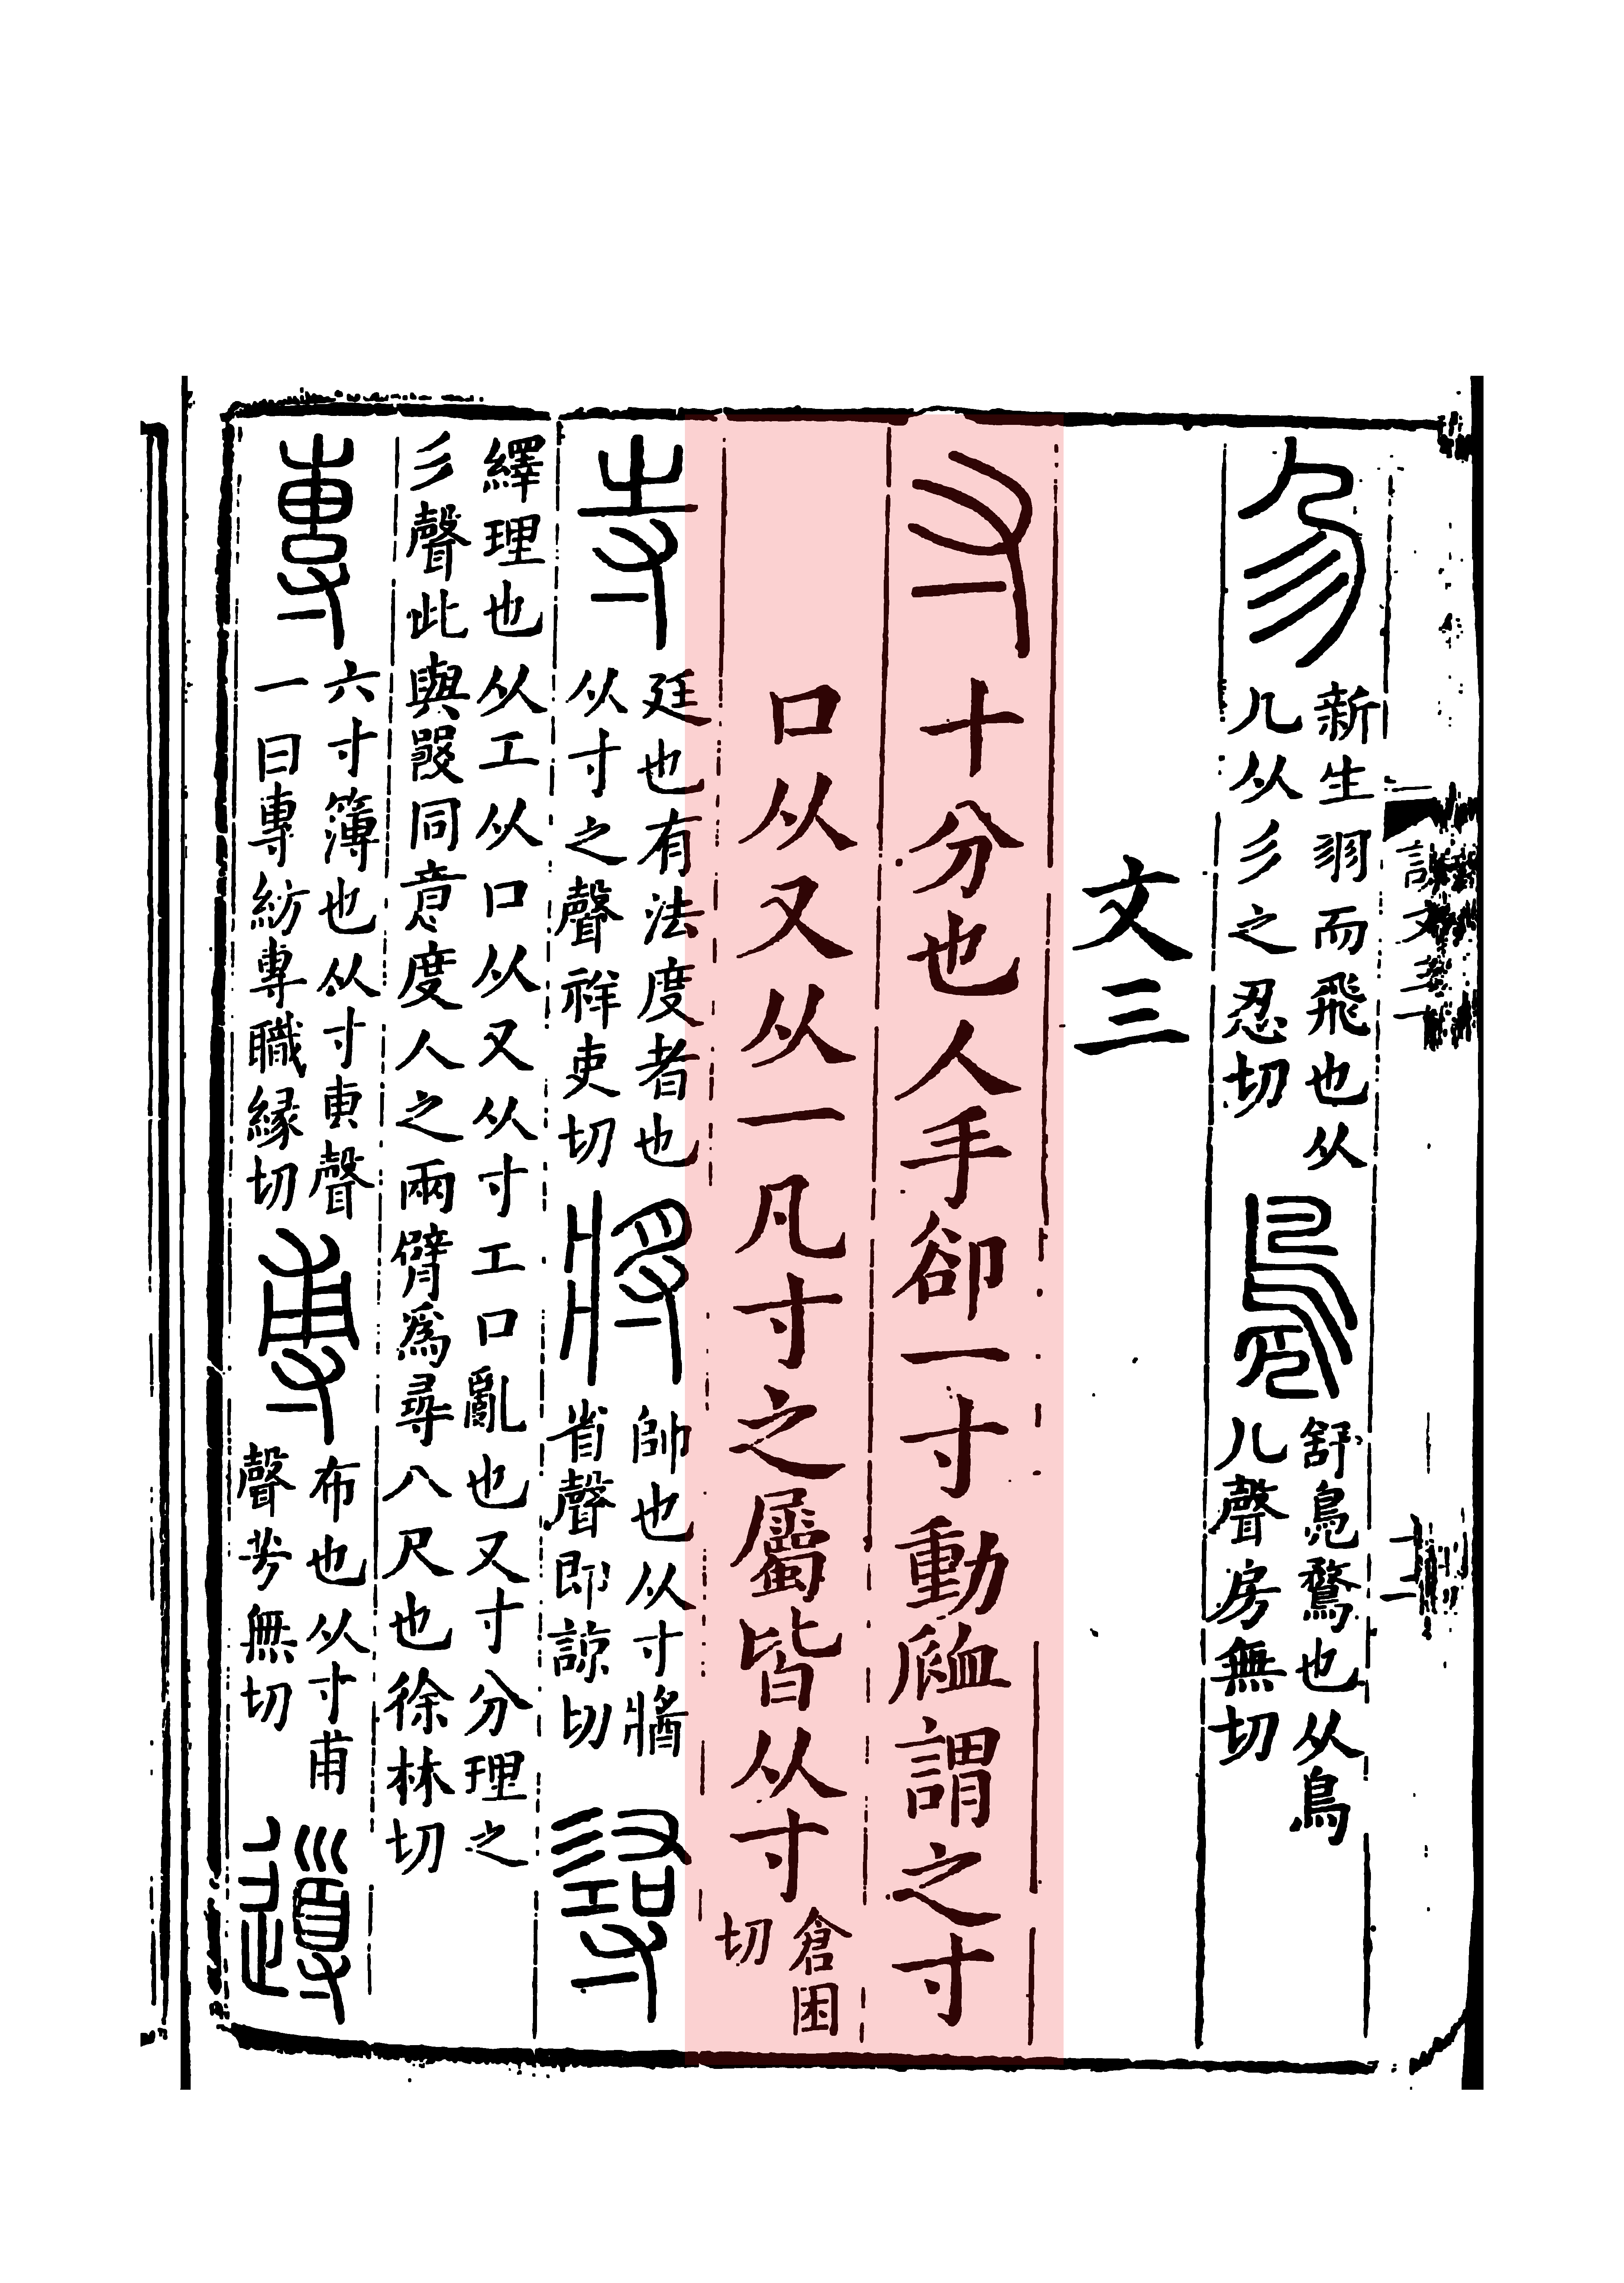 新生羽而飛也从
几从彡之忍切
鳧
舒鳧鶩也从鳥
几聲房無切
文三
寸十分也人手卻一寸動𧖴謂之寸
口从又从一凡寸之屬皆从寸倉困切
寺
廷也有法度者也
从寸之聲祥吏切
將
帥也从寸𤖕
省聲即諒切
𢒫
繹理也从工从口从又从寸工口亂也又寸分理之
彡聲此與𤕦同意度人之兩臂爲尋八尺也徐林切
專
六寸簿也从寸叀聲
一曰專紡專職緣切
尃
布也从寸甫
聲芳無切
導